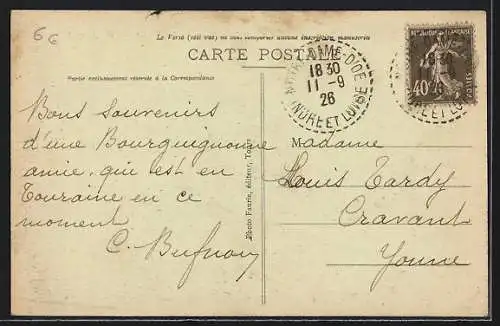 6
6
Le Verso (côté vue) ne doit comporter aucune inscription manuscrite
CARTE POSTALE
Partie exclusivement réservée à la Correspondance
NOTRE-DAME-D'OE
18 30
11-9
26
INDRE ET LOIRE
POSTES
40c
Bons souvenirs
d'une Bourguignonne
amie, qui est en
Touraine en ce
moment
C. Bufnoir
Photo Faurie, éditeur, Tours
Madame
Louis Tardy
Cravant
Yonne